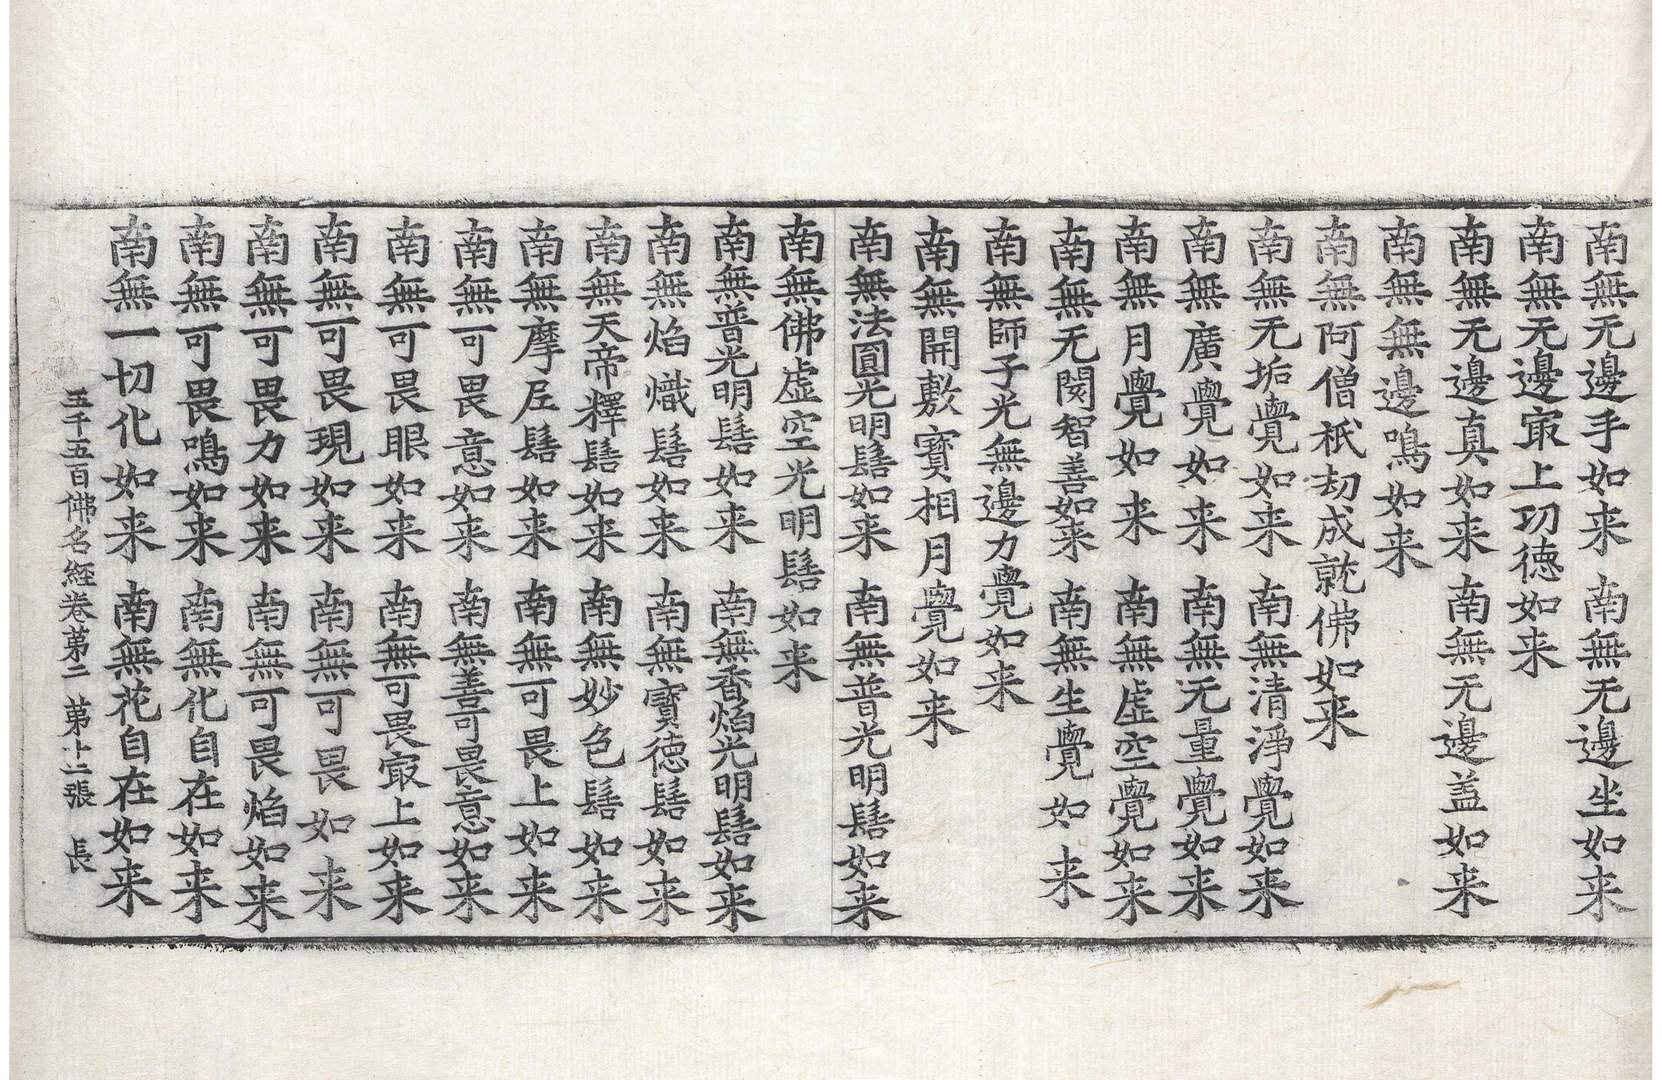 南無无邊手如来 南無无邊坐如来
南無无邊㝡上㓛德如来
南無无邊真如来 南無无邊盖如来
南無無邊鳴如来
南無阿僧祇劫成就佛如来
南無无垢覺如来 南無清淨覺如来
南無廣覺如来 南無无量覺如来
南無月覺如来 南無虛空覺如来
南無无閡智善如来 南無生覺如来
南無師子光無邊力覺如来
南無開敷寶相月覺如来
南無法圓光明髻如来 南無普光明髻如来
南無佛虛空光明髻如来
南無普光明髻如来 南無香焰光明髻如来
南無焰熾髻如来 南無寶德髻如来
南無天帝釋髻如来 南無妙色髻如来
南無摩尼髻如来 南無可畏上如来
南無可畏意如来 南無善可畏意如来
南無可畏眼如来 南無可畏㝡上如来
南無可畏現如来 南無可畏如来
南無可畏力如来 南無可畏焰如来
南無可畏鳴如来 南無化自在如来
南無一切化如来 南無花自在如来
五千五百佛名經卷苐二 苐十二張 長